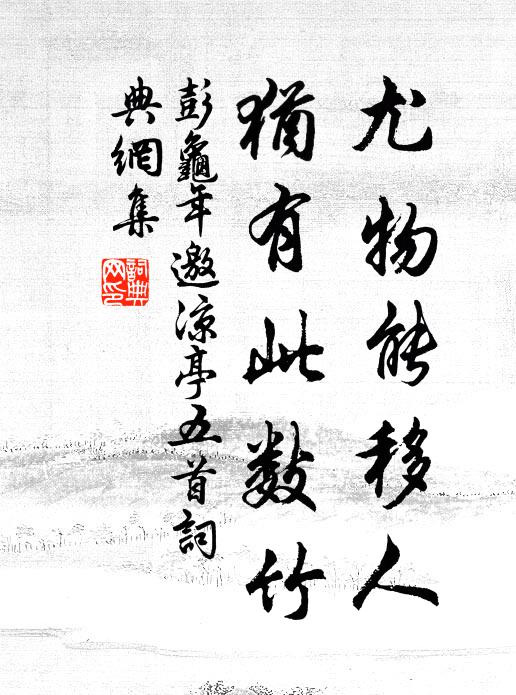 尤物能移人
猶有此數竹
彭龜年邀涼亭五首詞
典網集
詞典
网印